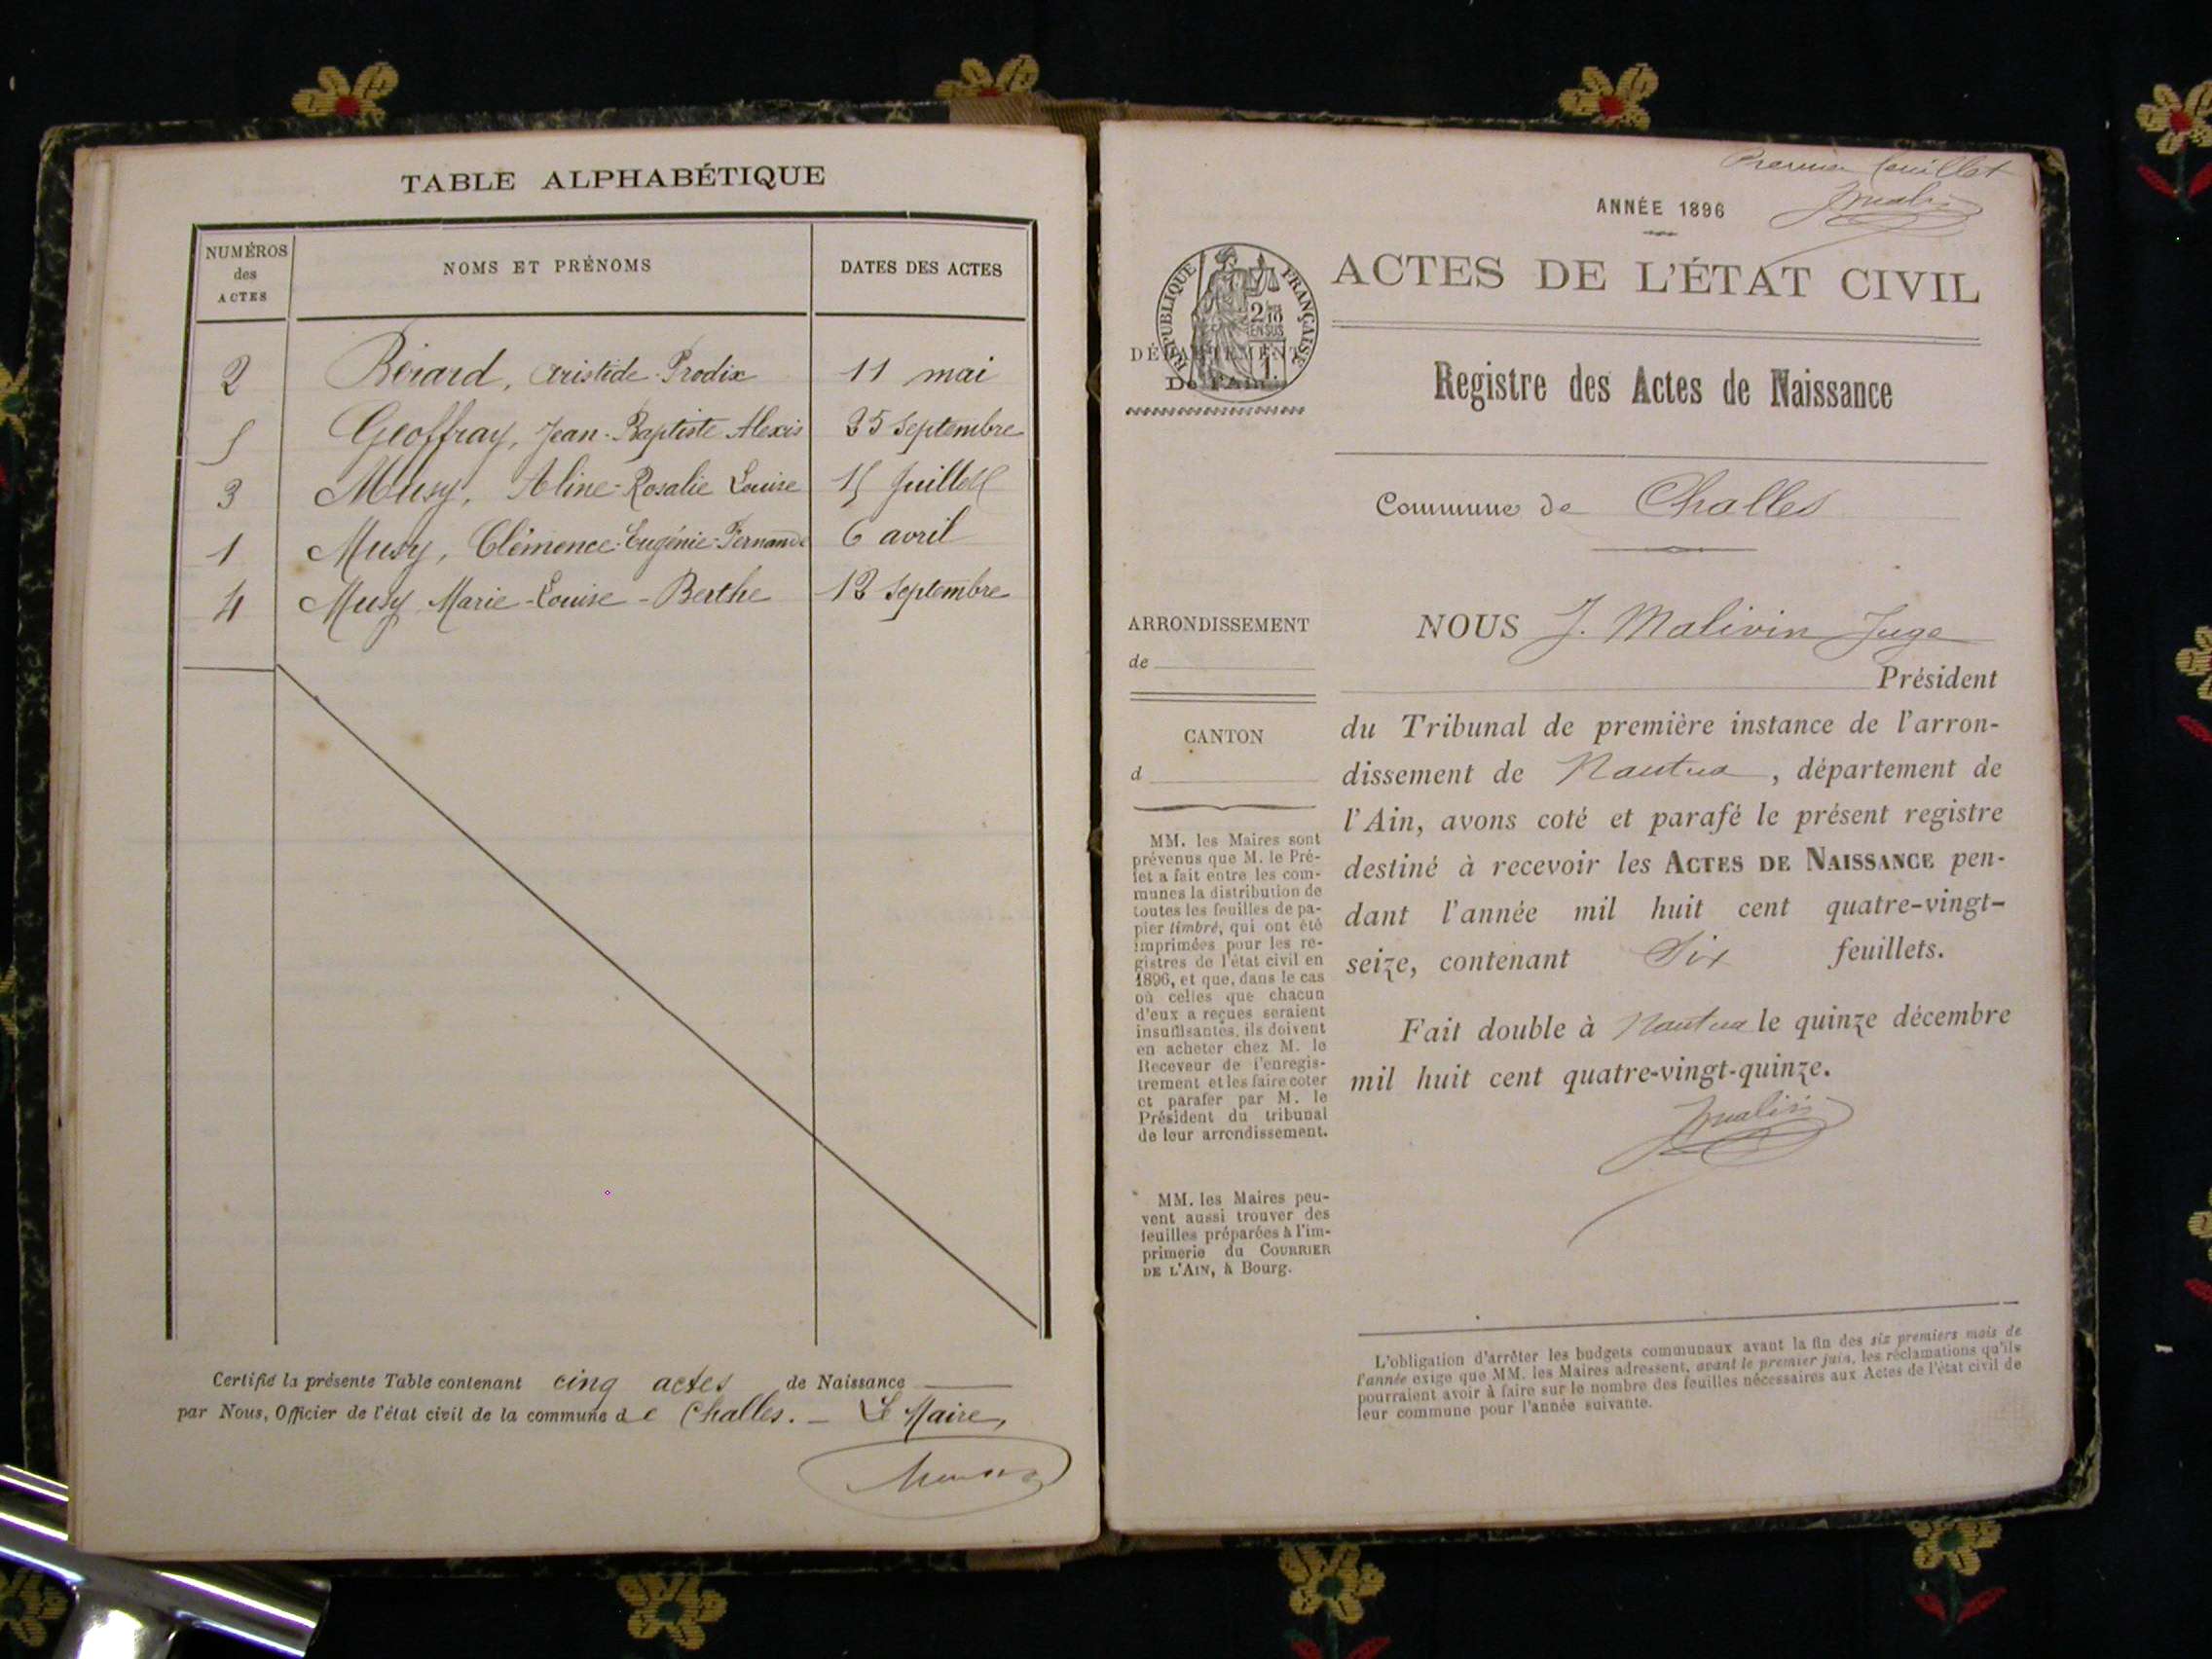 TABLE ALPHABÉTIQUE
NUMÉROS
des
ACTES
NOMS ET PRÉNOMS
DATES DES ACTES
2 Bérard, Aristide-Prodix 11 mai
5 Geoffray, Jean-Baptiste Alexis 25 Septembre
3 Musy, Aline-Rosalie Louise 15 Juillet
1 Musy, Clémence-Eugénie-Fernande 6 avril
4 Musy Marie-Louise-Berthe 12 Septembre
Certifié la présente Table contenant cinq actes de Naissance
par Nous, Officier de l'état civil de la commune de Challes. — Le Maire,
Premier feuillet
ANNÉE 1896
RÉPUBLIQUE FRANÇAISE
2/10
EN SUS
ACTES DE L'ÉTAT CIVIL
DÉPARTEMENT
De l'Ain
Registre des Actes de Naissance
Commune de Challes
ARRONDISSEMENT
de
CANTON
d
MM. les Maires sont
prévenus que M. le Pré-
fet a fait entre les com-
munes la distribution de
toutes les feuilles de pa-
pier timbré, qui ont été
imprimées pour les re-
gistres de l'état civil en
1896, et que, dans le cas
où celles que chacun
d'eux a reçues seraient
insuffisantes, ils doivent
en acheter chez M. le
Receveur de l'enregis-
trement et les faire coter
et parafer par M. le
Président du tribunal
de leur arrondissement.
MM. les Maires peu-
vent aussi trouver des
feuilles préparées à l'im-
primerie du COURRIER
DE L'AIN, à Bourg.
NOUS J. Malivin Juge
Président
du Tribunal de première instance de l'arron-
dissement de Nantua, département de
l'Ain, avons coté et parafé le présent registre
destiné à recevoir les ACTES DE NAISSANCE pen-
dant l'année mil huit cent quatre-vingt-
seize, contenant Six feuillets.
Fait double à Nantua le quinze décembre
mil huit cent quatre-vingt-quinze.
L'obligation d'arrêter les budgets communaux avant la fin des six premiers mois de
l'année exige que MM. les Maires adressent, avant le premier juin, les réclamations qu'ils
pourraient avoir à faire sur le nombre des feuilles nécessaires aux Actes de l'état civil de
leur commune pour l'année suivante.